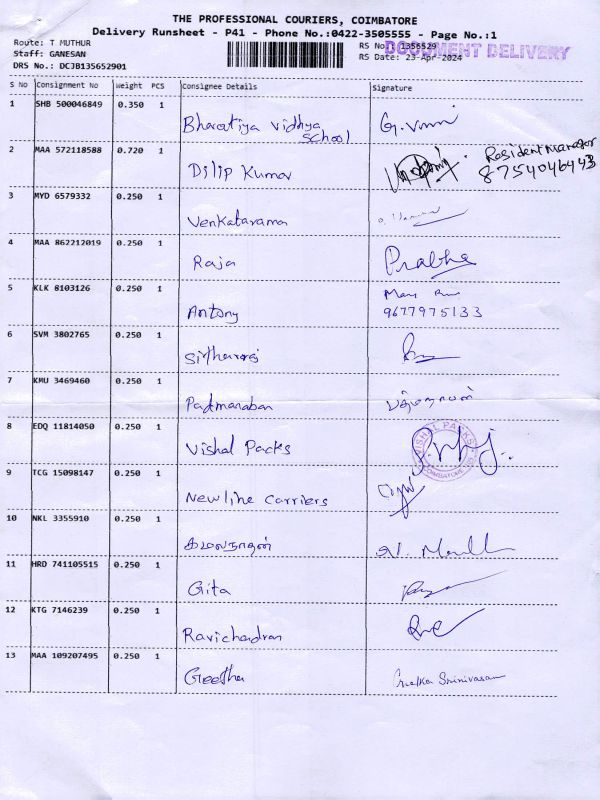 THE PROFESSIONAL COURIERS, COIMBATORE
Delivery Runsheet - P41 - Phone No.:0422-3505555 - Page No.:1
Route: T MUTHUR
Staff: GANESAN
DRS No.: DCJB135652901
RS No: 1356529
RS Date: 23-Apr-2024
DOCUMENT DELIVERY
S No Consignment No weight PCS Consignee Details Signature
1 SHB 500046849 0.350 1 Bharatiya Vidhya School
2 MAA 572118588 0.720 1 Dilip Kumar Resident Manager 8754046443
3 MYD 6579332 0.250 1 Venkatarama
4 MAA 862212019 0.250 1 Raja Prabha
5 KLK 8103126 0.250 1 Antony 9677975133
6 SVM 3802765 0.250 1
7 KMU 3469460 0.250 1 Padmanaban பத்மநாபன்
8 EDQ 11814050 0.250 1 Vishal Packs VISHAL PACKS COIMBATORE
9 TCG 15098147 0.250 1 Newline Carriers
10 NKL 3355910 0.250 1 கமலநாதன்
11 HRD 741105515 0.250 1 Gita
12 KTG 7146239 0.250 1 Ravichandran
13 MAA 109207495 0.250 1 Geetha Geetha Srinivasan